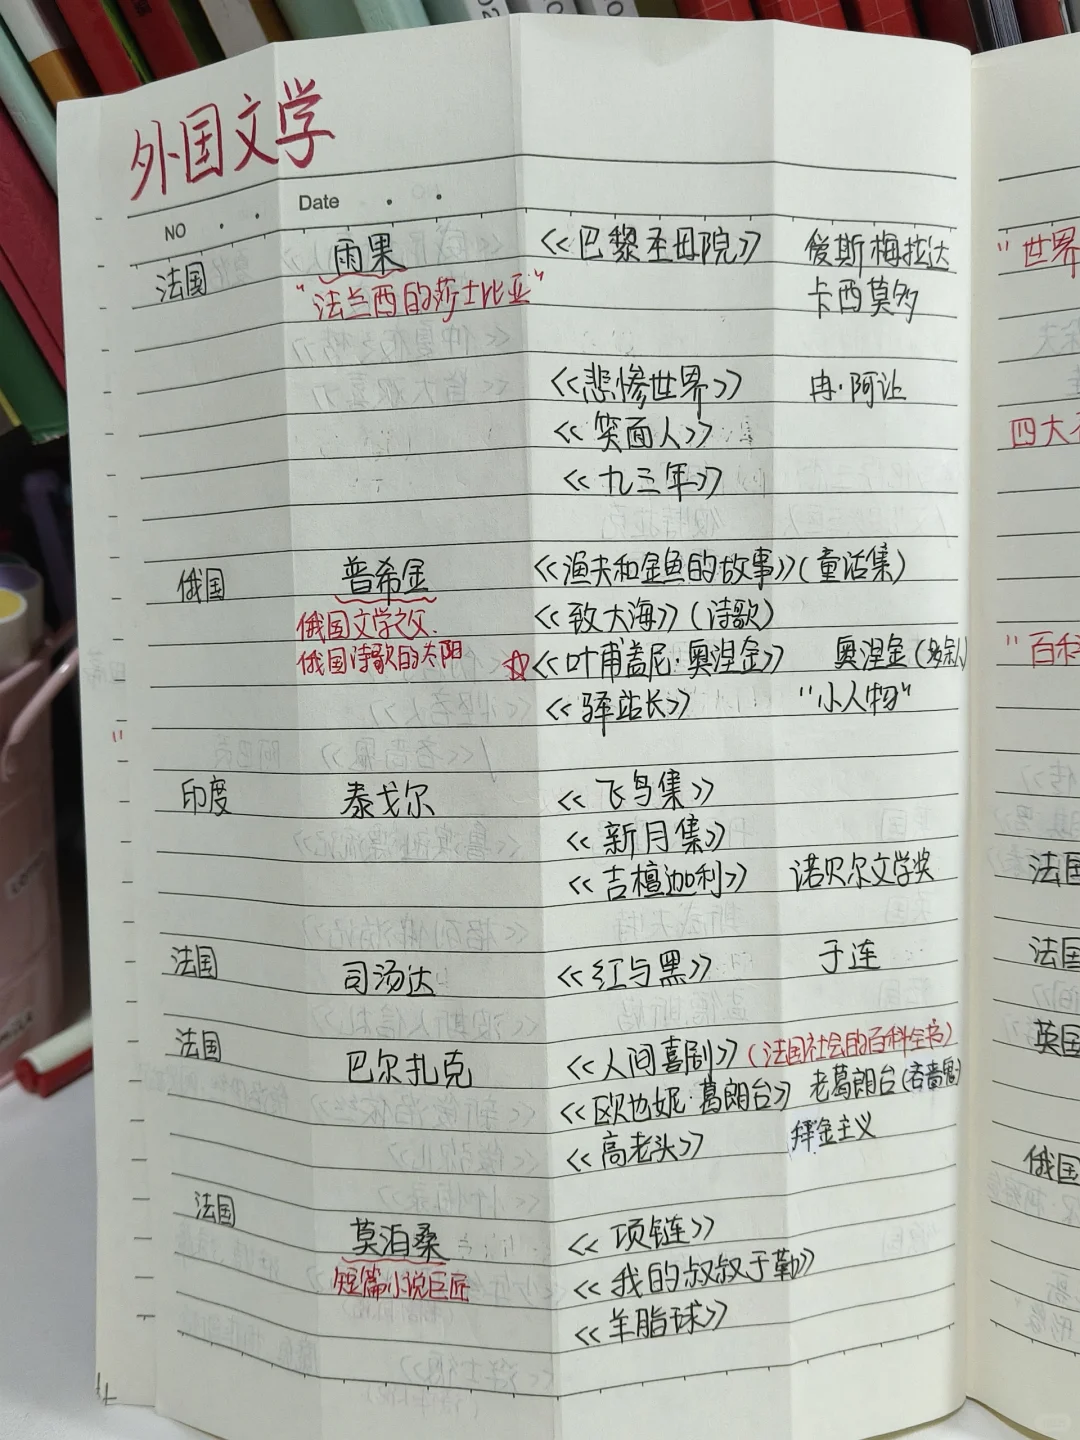 外国文学
NO
Date
法国 雨果 《巴黎圣母院》 爱斯梅拉达
"法兰西的莎士比亚" 卡西莫多
《悲惨世界》 冉·阿让
《笑面人》
《九三年》
俄国 普希金 《渔夫和金鱼的故事》(童话集)
俄国文学之父. 《致大海》(诗歌)
俄国诗歌的太阳 ☆《叶甫盖尼·奥涅金》 奥涅金(多余人)
《驿站长》 "小人物"
印度 泰戈尔 《飞鸟集》
《新月集》
《吉檀迦利》 诺贝尔文学奖
法国 司汤达 《红与黑》 于连
法国 巴尔扎克 《人间喜剧》(法国社会的百科全书)
《欧也妮·葛朗台》 老葛朗台(吝啬鬼)
《高老头》 拜金主义
法国 莫泊桑 《项链》
短篇小说巨匠 《我的叔叔于勒》
《羊脂球》
"世界
四大
"百科
法国
法国
英国
俄国